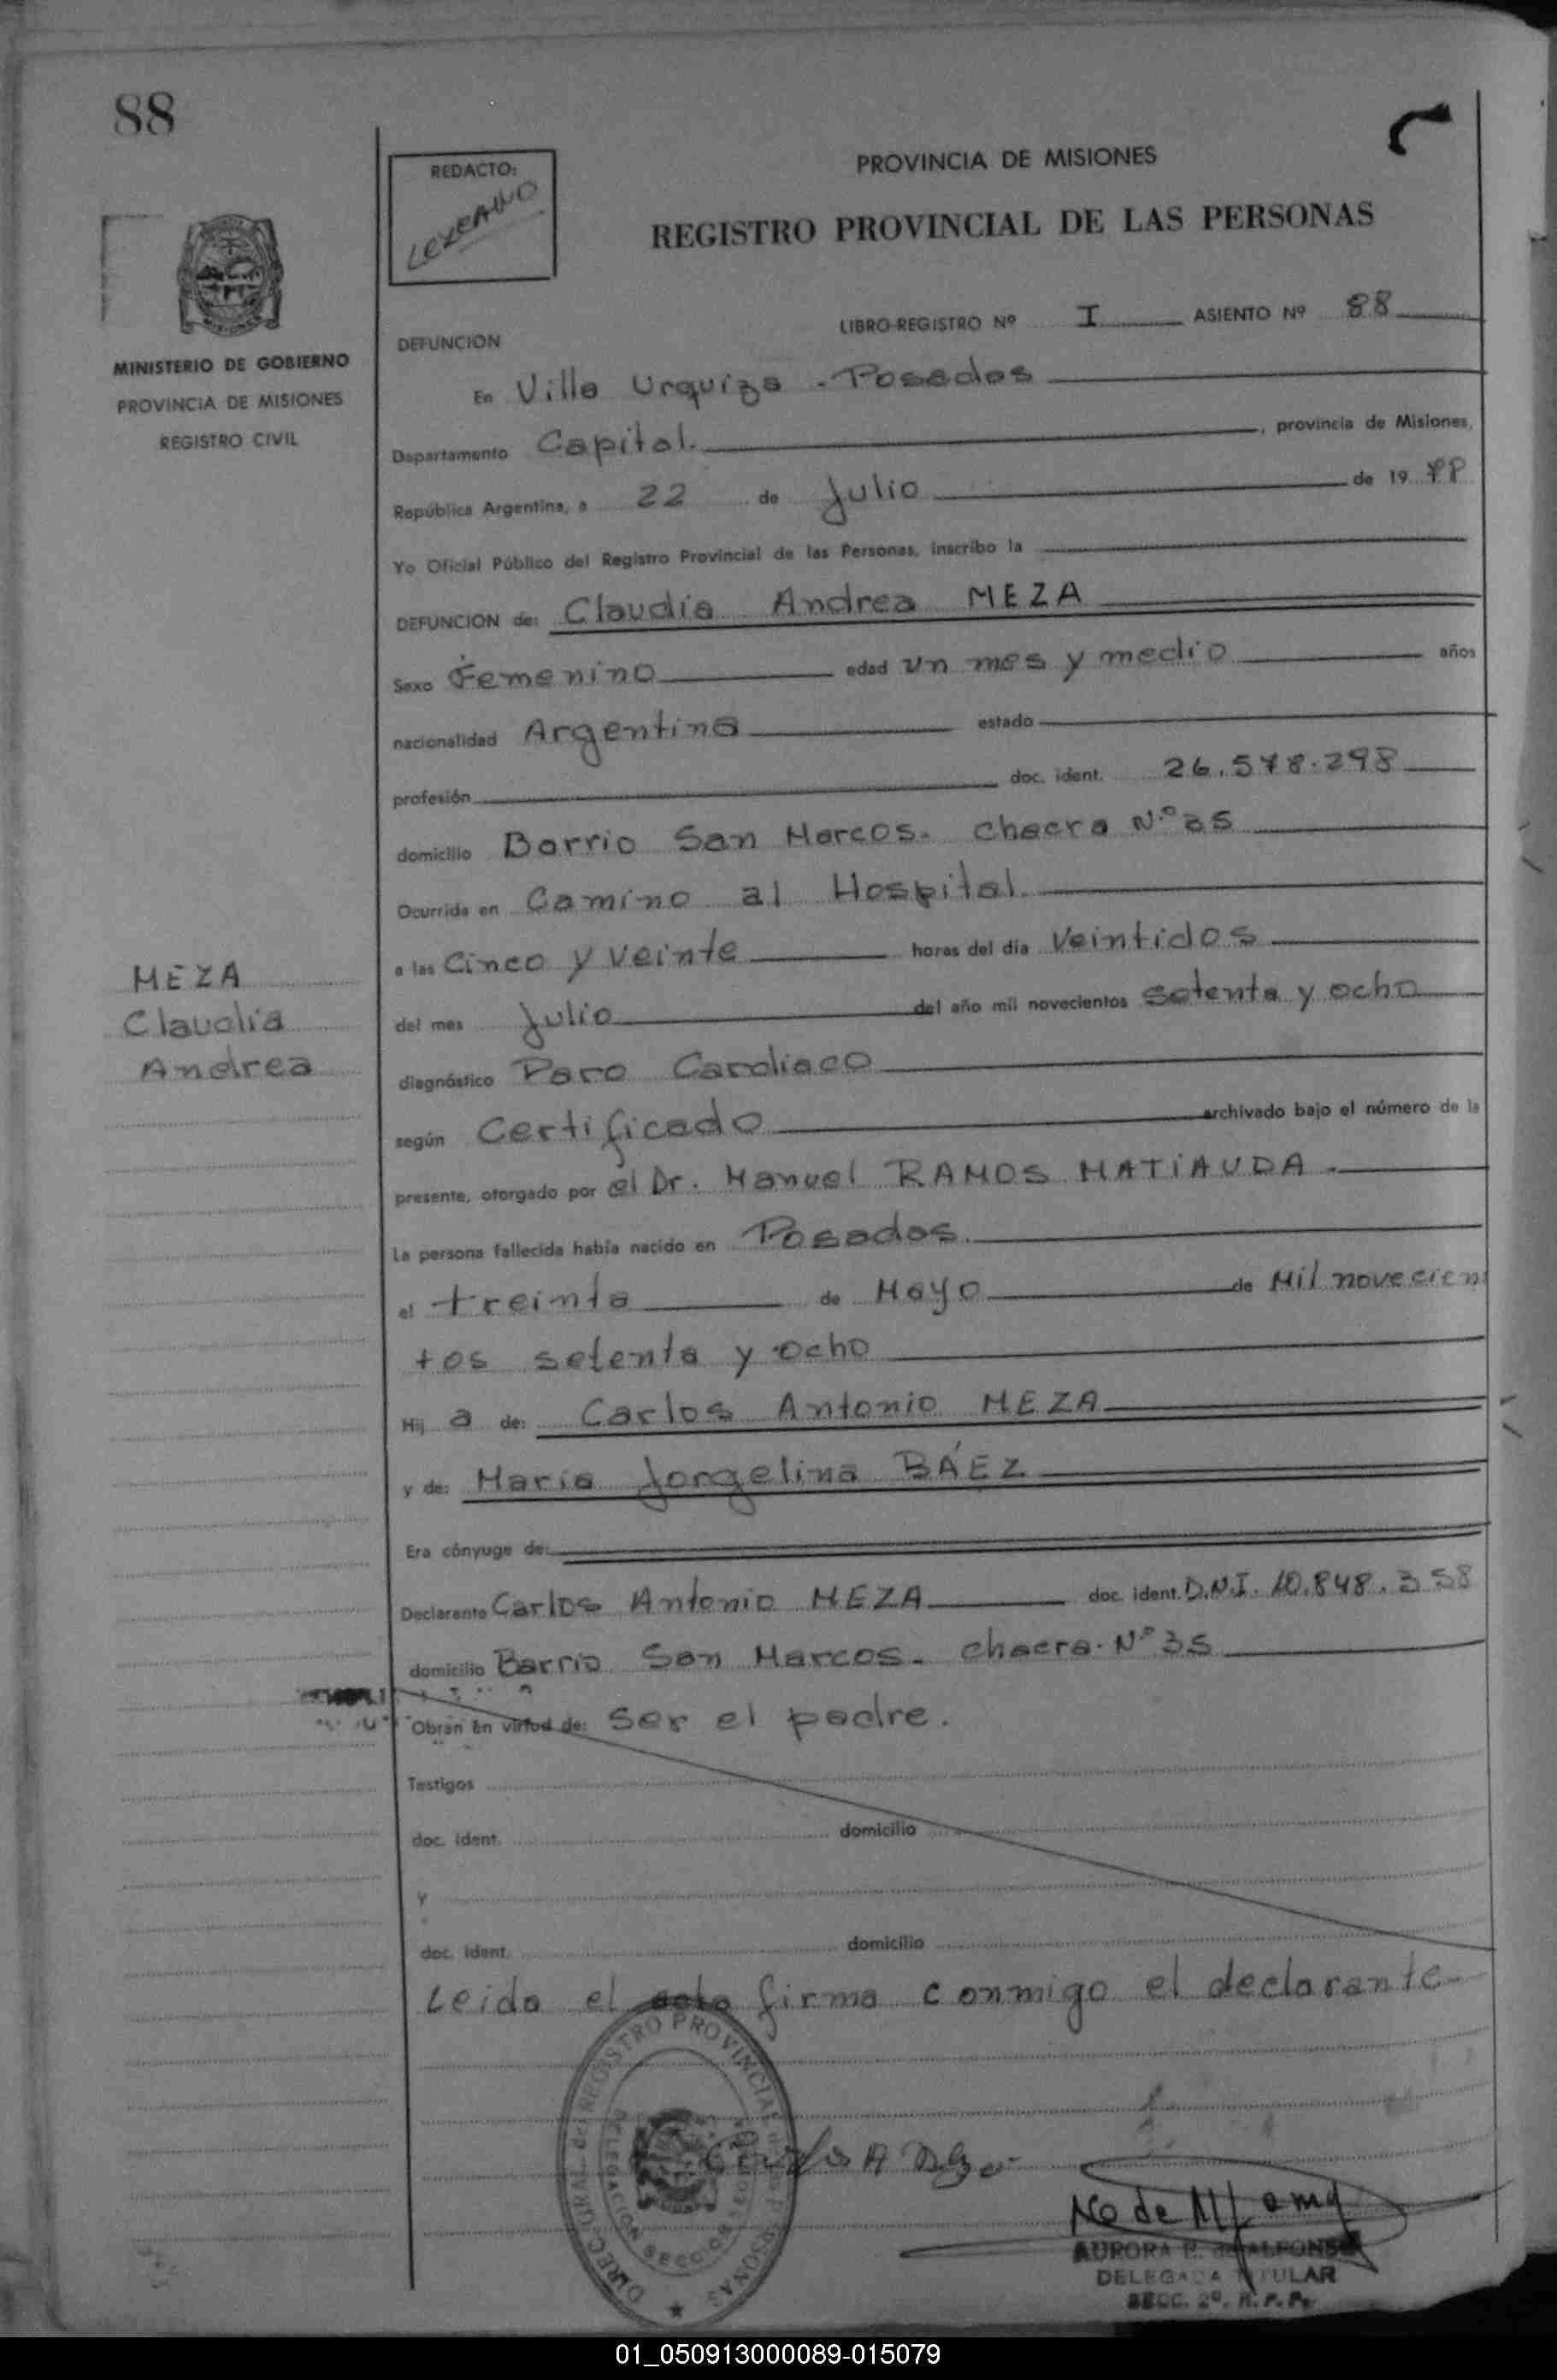 88
REDACTO:
LEZCANO
PROVINCIA DE MISIONES
REGISTRO PROVINCIAL DE LAS PERSONAS
MINISTERIO DE GOBIERNO
PROVINCIA DE MISIONES
REGISTRO CIVIL
LIBRO-REGISTRO Nº I ASIENTO Nº 88
DEFUNCION
En Villa Urquiza - Posadas
Departamento Capital. , provincia de Misiones,
República Argentina, a 22 de Julio de 19 78
Yo Oficial Público del Registro Provincial de las Personas, inscribo la
DEFUNCION de: Claudia Andrea MEZA
Sexo Femenino edad un mes y medio años
nacionalidad Argentina estado
profesión doc. ident. 26.578.298
domicilio Barrio San Marcos. chacra N.º 35
Ocurrida en Camino al Hospital.
a las Cinco y veinte horas del día Veintidos
del mes Julio del año mil novecientos setenta y ocho
diagnóstico Paro Cardiaco
según Certificado archivado bajo el número de la
presente, otorgado por el Dr. Manuel RAMOS MATIAUDA.
La persona fallecida había nacido en Posadas.
el treinta de Mayo de Mil novecien
tos setenta y ocho
Hij a de: Carlos Antonio MEZA
y de: Maria Jorgelina BÁEZ
Era cónyuge de:
Declarante Carlos Antonio MEZA doc. ident. D.N.I. 10.848.358
domicilio Barrio San Marcos. chacra. Nº 35
Obran en virtud de: Ser el padre.
Testigos
doc. ident. domicilio
y
doc. ident. domicilio
Leida el acta firma conmigo el declarante
MEZA
Claudia
Andrea
DIREC. GRAL. del REGISTRO PROVINCIAL de las PERSONAS
DELEGACION SECCION
AURORA P. de ALFONSO
DELEGADA TITULAR
SECC. 2ª. R. P. P.
01_050913000089-015079